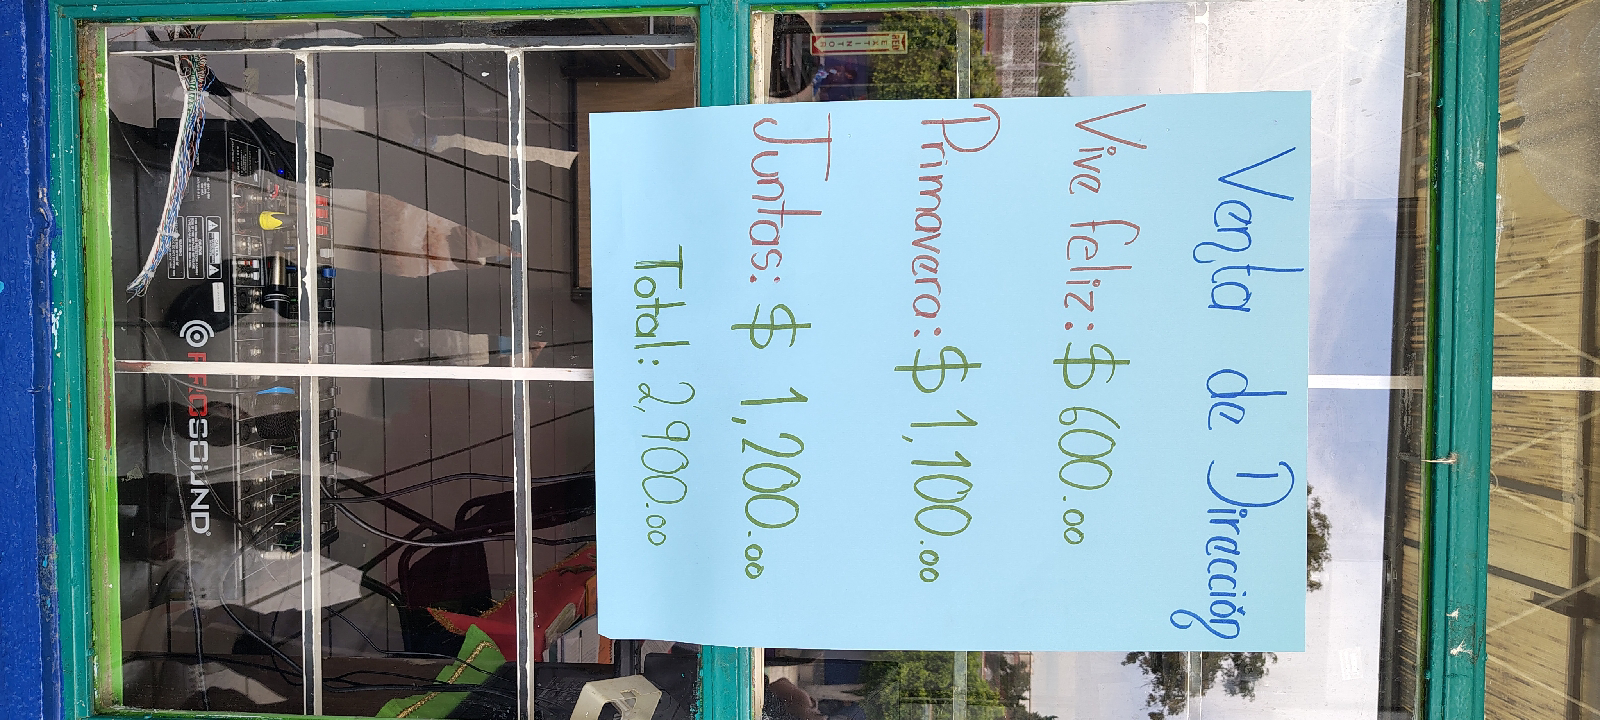 Venta de Dirección
Vive feliz: $ 600.00
Primavera: $ 1,100.00
Juntas: $ 1,200.00
Total: 2,900.00
PROSOUND